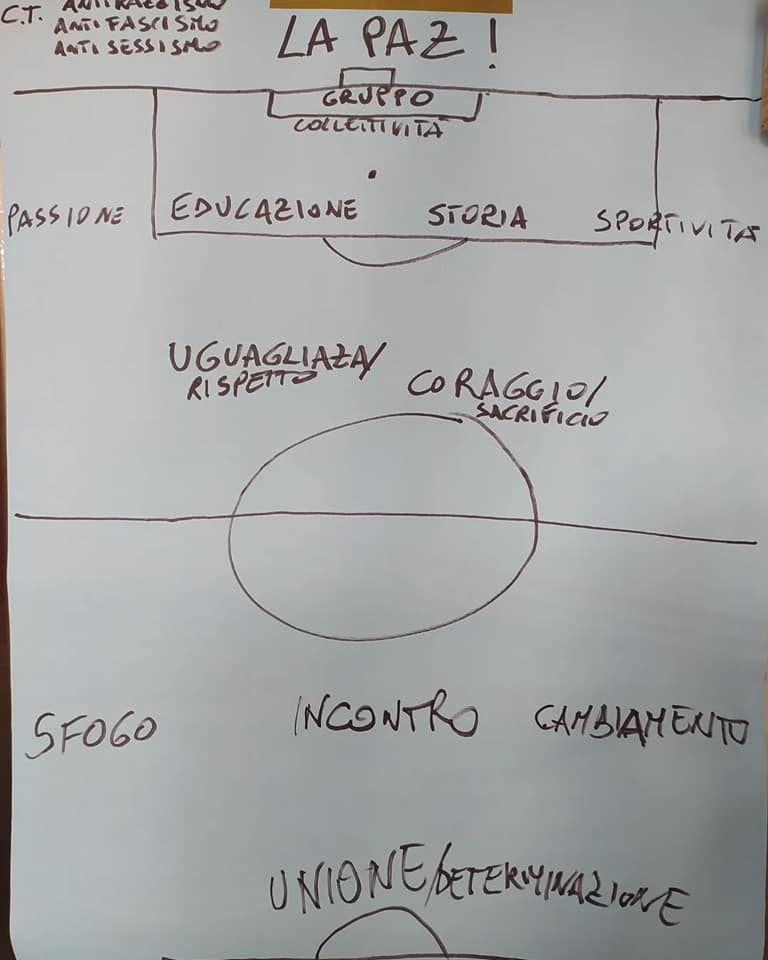 C.T. ANTIRAZZISMO
ANTIFASCISMO
ANTISESSISMO
LA PAZ!
GRUPPO
COLLETTIVITÀ
PASSIONE EDUCAZIONE STORIA SPORTIVITÀ
UGUAGLIAZA/
RISPETTO
CORAGGIO/
SACRIFICIO
SFOGO INCONTRO CAMBIAMENTO
UNIONE/DETERMINAZIONE